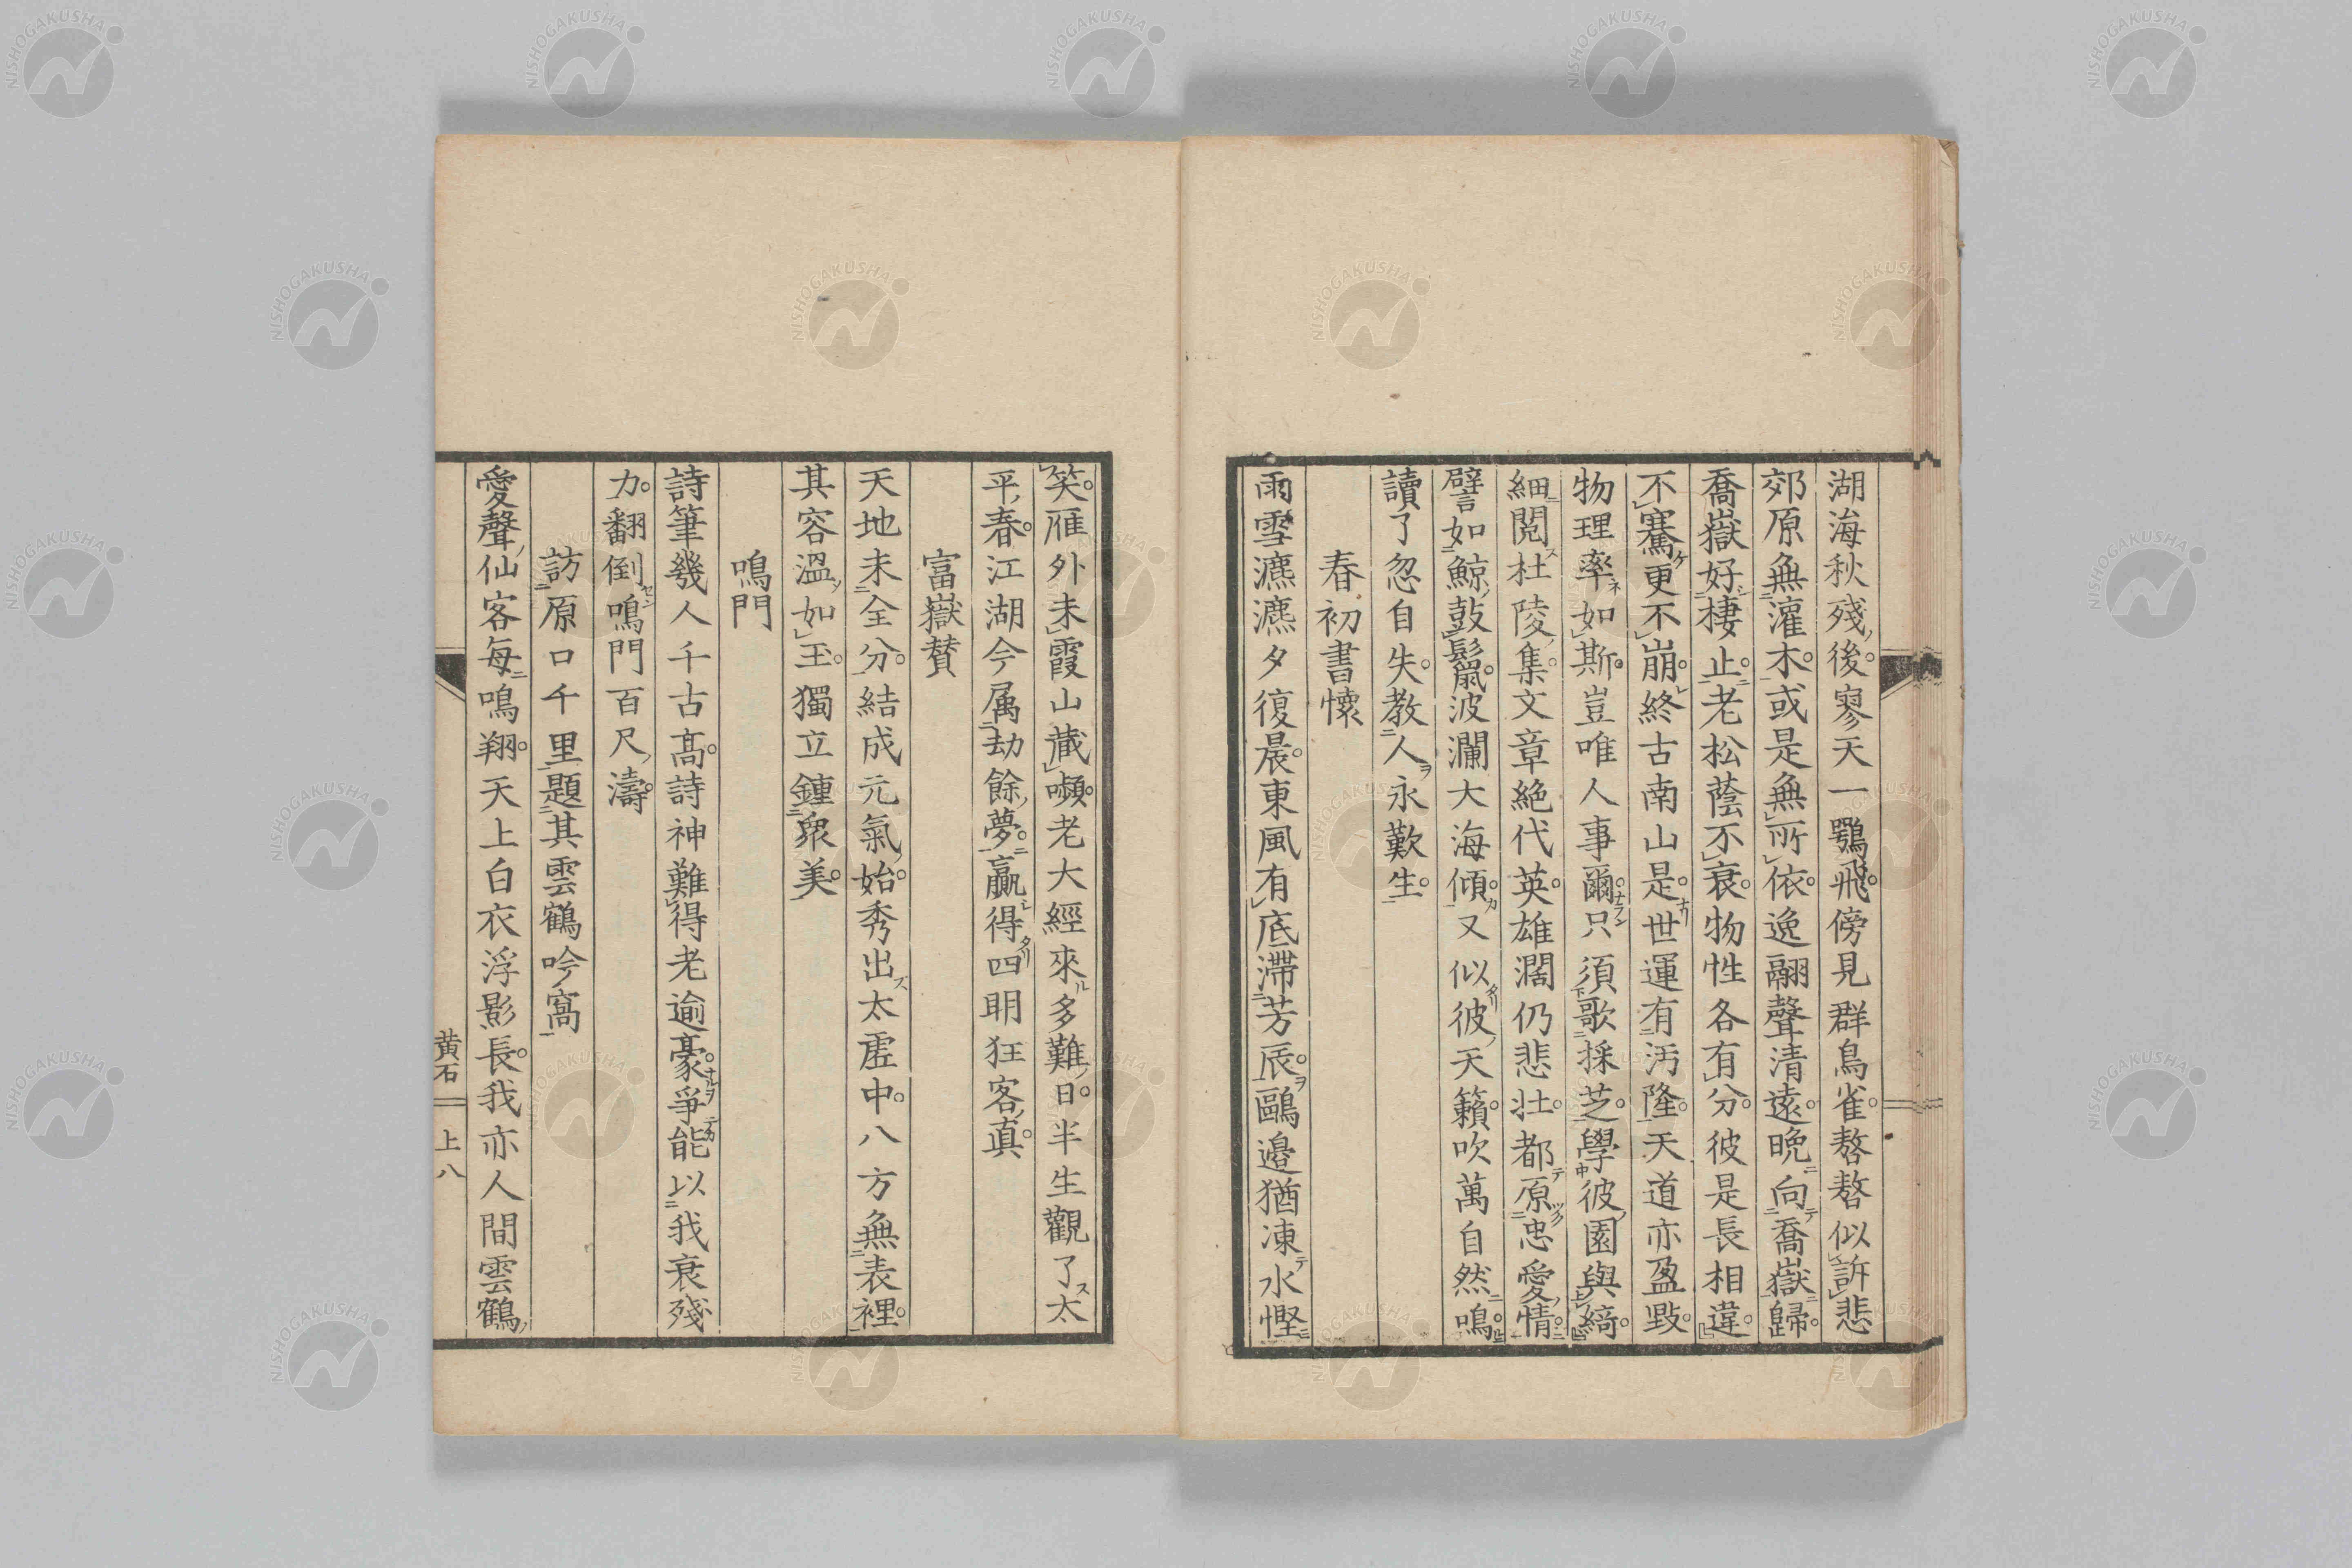 湖海秋殘後寥天一鶚飛傍見群鳥雀嗸嗸似訴悲
郊原無灌木或是無所依逸翮聲清遠晩向喬嶽歸
喬嶽好棲止老松蔭不衰物性各有分彼是長相違
不騫更不崩終古南山是世運有汚隆天道亦盈毀
物理率如斯豈唯人事爾只須歌採芝學彼園與綺
細閲杜陵集文章絶代英雄濶仍悲壯都原忠愛情
譬如鯨鼓鬣波瀾大海傾又似彼天籟吹萬自然鳴
讀了忽自失教人永歎生
春初書懷
雨雪瀌瀌夕復晨東風有底滯芳辰鷗邉猶凍水慳
笑雁外未霞山藏嚬老大經來多難日半生觀了太
平春江湖今属劫餘夢贏得四明狂客真
富嶽賛
天地未全分結成元氣始秀出太虚中八方無表裡
其容溫如玉獨立鍾衆美
鳴門
詩筆幾人千古髙詩神難得老逾豪爭能以我衰殘
力翻倒鳴門百尺濤
訪原口千里題其雲鶴吟窩
愛聲仙客毎鳴翔天上白衣浮影長我亦人間雲鶴
黄石 上八